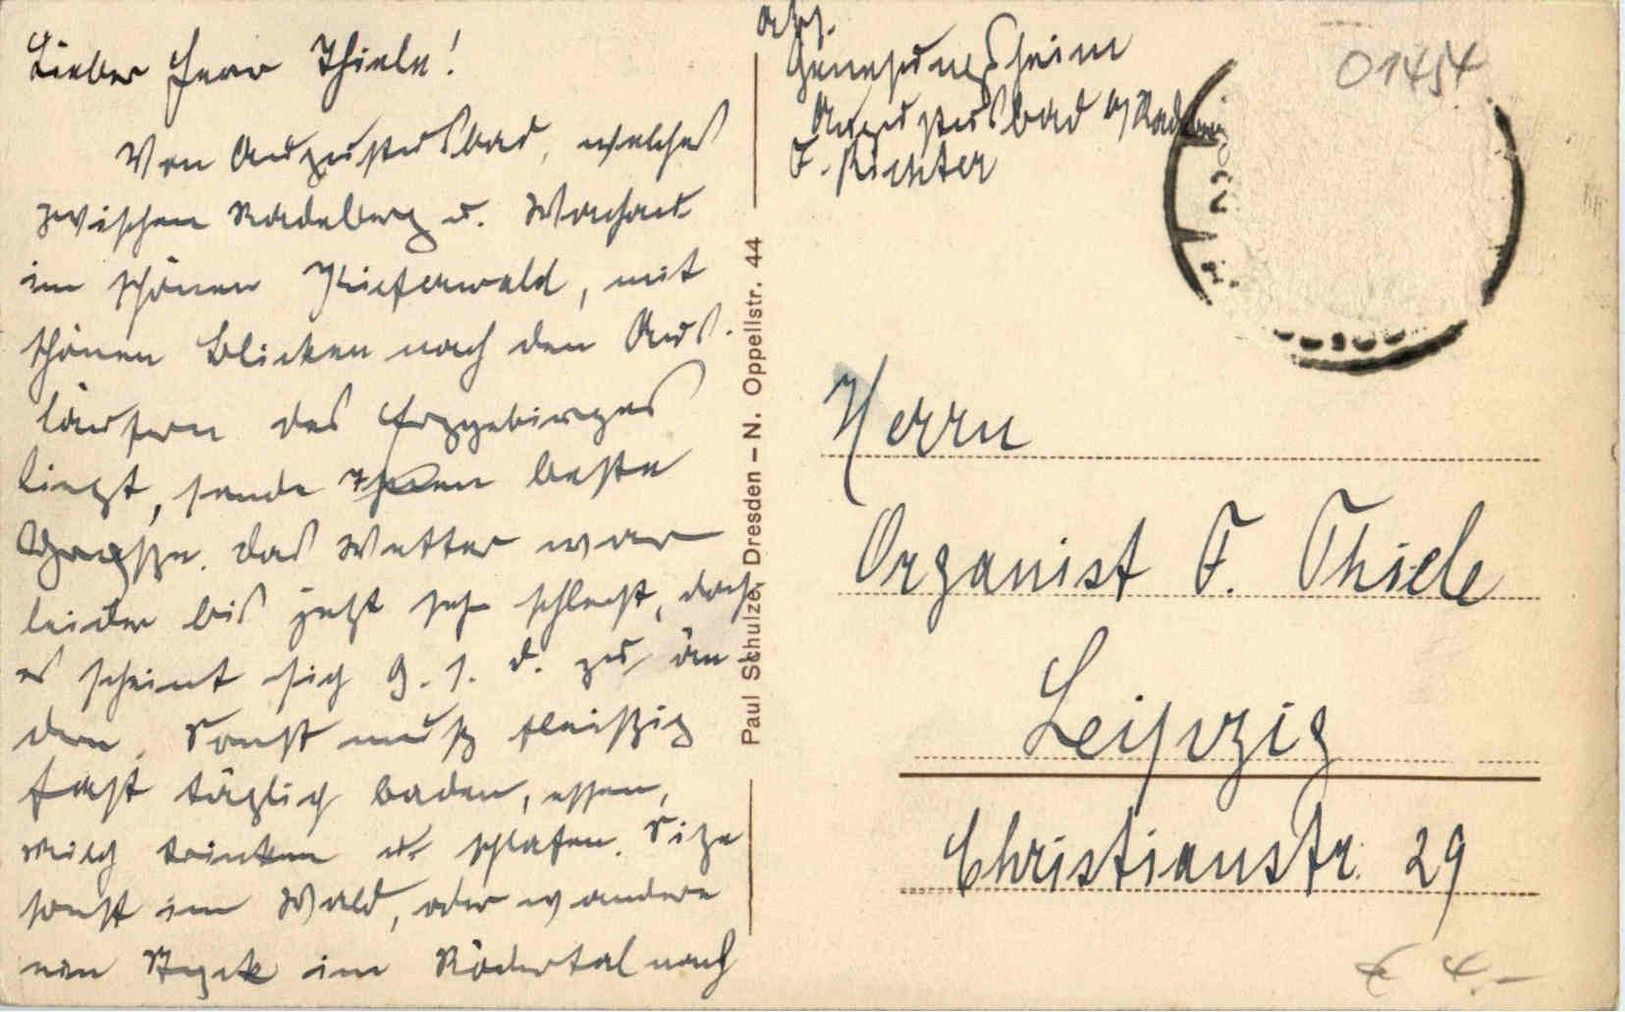 Lieber Herr Thiele!
Von Augustusbad, welches
zwischen Radeberg u. Wachau
im schönen Kiefernwald, mit
schönen Blicken nach den Aus-
läufern des Erzgebirges
liegt, sende Ihnen beste
Grüße. Das Wetter war
leider bis jetzt sehr schlecht, doch
es scheint sich G. s. d. zu än-
dern. Sonst muß fleißig
fast täglich baden, essen,
Milch trinken u. schlafen. Sitze
sonst im Wald, oder wandere
ein Stück im Rödertal nach
Abs.
Genesungsheim
Augustusbad b/Radeberg
F. Richter
Paul Schulze, Dresden – N. Oppellstr. 44
01454
Herrn
Organist F. Thiele
Leipzig
Christianstr. 29
€ 4.-